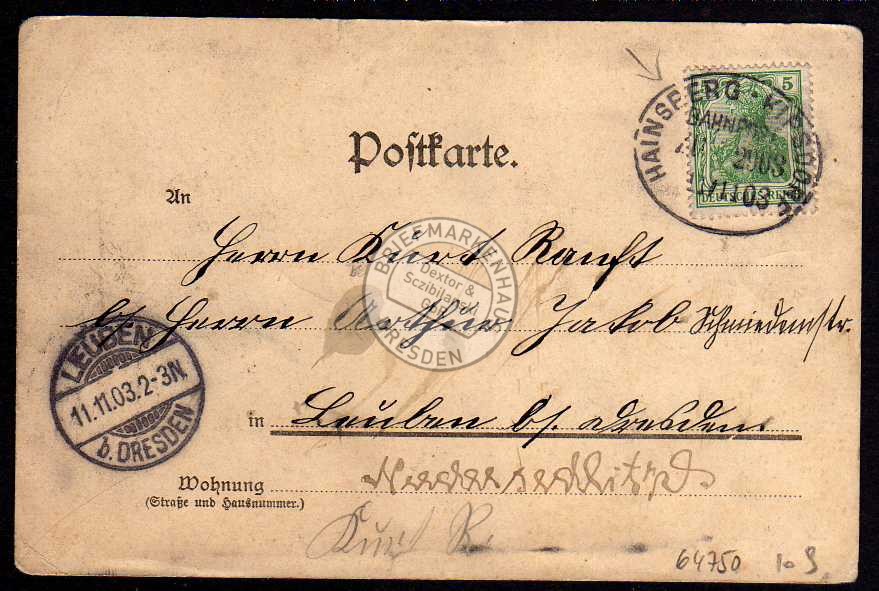 HAINSBERG · KIPSDORF
5 5
BAHNPOST
Z. 2908
11 11 03
DEUTSCHES REICH
Postkarte.
An
Herrn Kurt Ranft
BRIEFMARKENHAUS
Dextor &
Sczibilanski
GbR
DRESDEN
b/ Herrn Arthur Jakob Schmiedemstr.
LEUBEN
11.11.03.2-3N.
b. DRESDEN
in Leuben b/. Dresden.
Wohnung Niedersedlitz
(Straße und Hausnummer.)
Kurt R.
64750 10 S